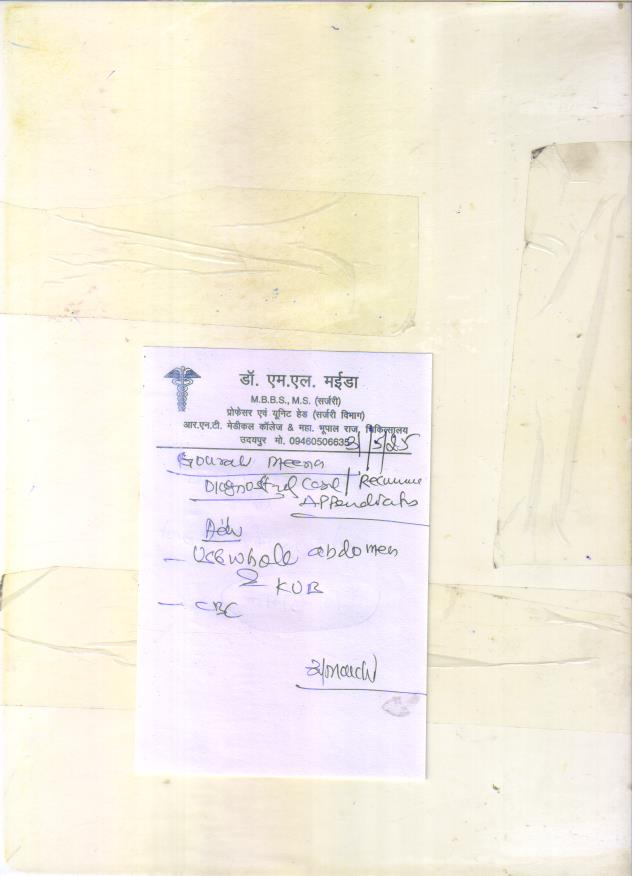 डॉ. एम.एल. मईडा
M.B.B.S., M.S. (सर्जरी)
प्रोफेसर एवं यूनिट हेड (सर्जरी विभाग)
आर.एन.टी. मेडीकल कॉलेज & महा. भूपाल राज. चिकित्सालय
उदयपुर मो. 09460506635
3/5/25
Gourav Meena
Diagnosed Case / Recurrent
Appendicitis
Adv
- USG whole abdomen
& KUB
- CBC